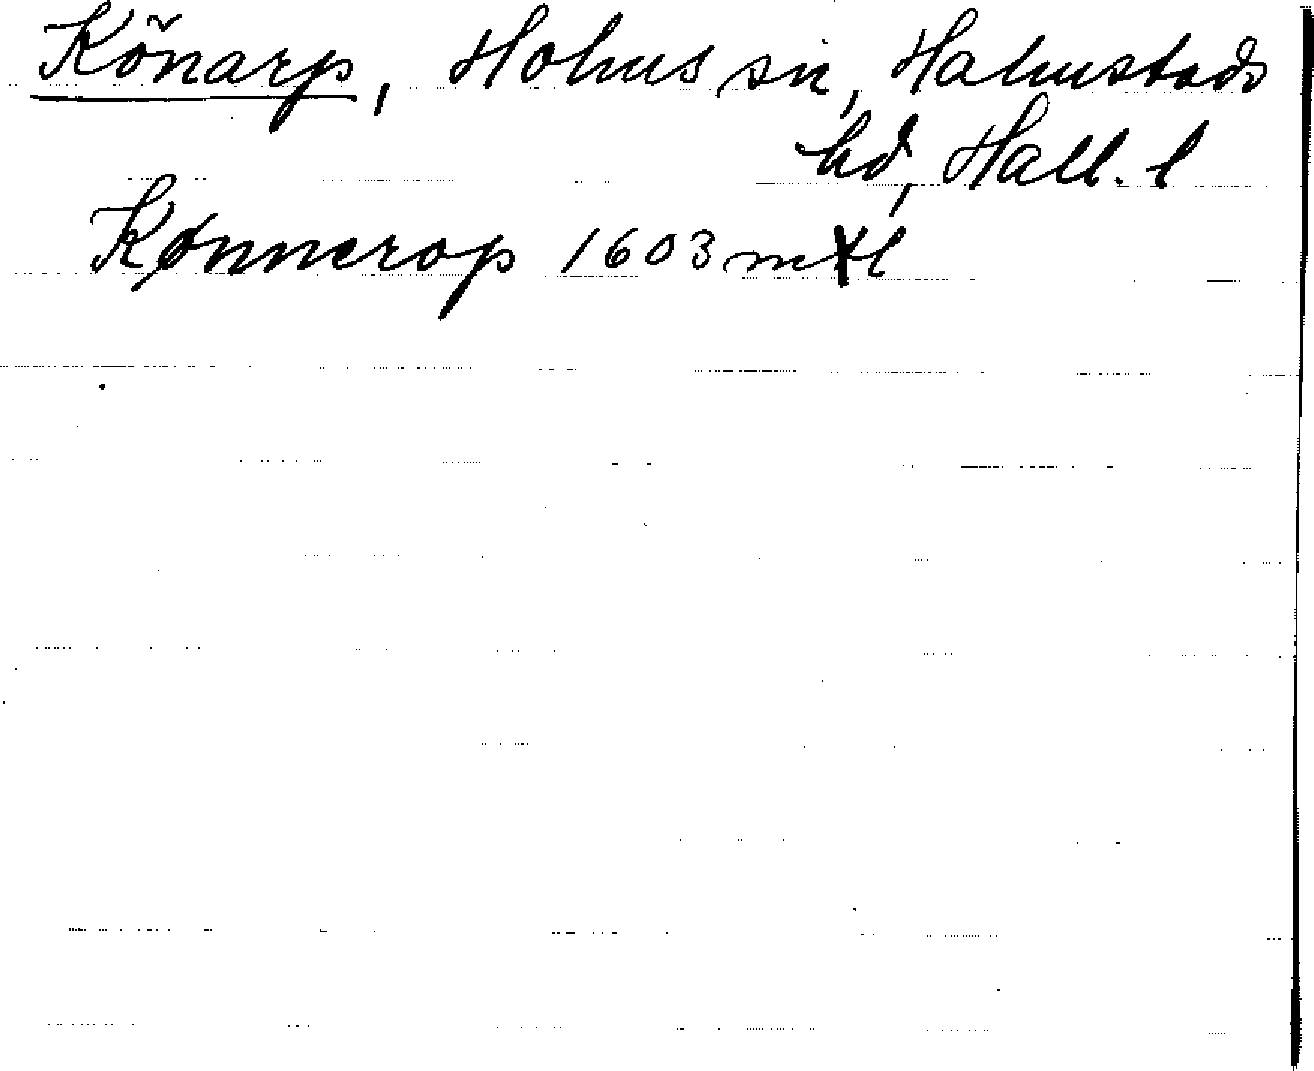 Könarp, Holms sn, Halmstads
hd, Hall. l
Kønnerop 1603 mtl